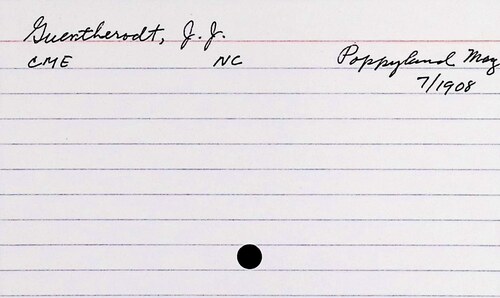 Guentherodt, J. J.
CME NC Poppyland Mag
7/1908